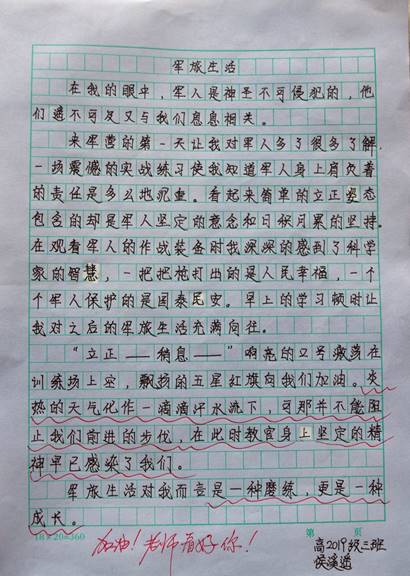 军旅生活
在我的眼中，军人是神圣不可侵犯的，他
们遥不可及又与我们息息相关。
来军营的第一天让我对军人多了很多了解，
一场震憾的实战练习使我知道军人身上肩负着
的责任是多么地沉重。看起来简单的立正姿态
包含的却是军人坚定的意念和日积月累的坚持。
在观看军人的作战装备时我深深的感到了科学
家的智慧，一把把枪打出的是人民幸福，一个
个军人保护的是国泰民安。早上的学习顿时让
我对之后的军旅生活充满向往。
“立正——稍息——”响亮的口号激荡在
训练场上空，飘扬的五星红旗向我们加油。炎
热的天气化作一滴滴汗水流下，可那并不能阻
止我们前进的步伐，在此时教官身上坚定的精
神早已感染了我们。
军旅生活对我而言是一种磨练，更是一种
成长。
18×20=360
第 页
加油！老师看好你！
高2019级三班
侯溪遥